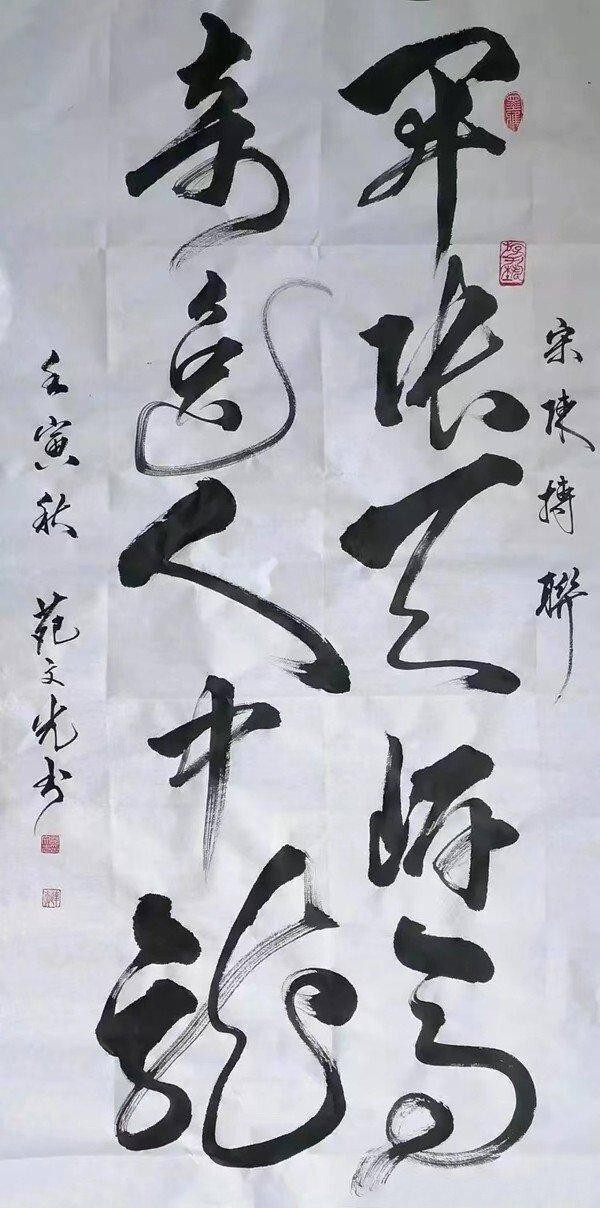 宋陳摶聯
開張天岸馬
奇逸人中龍
壬寅秋 苑文光书